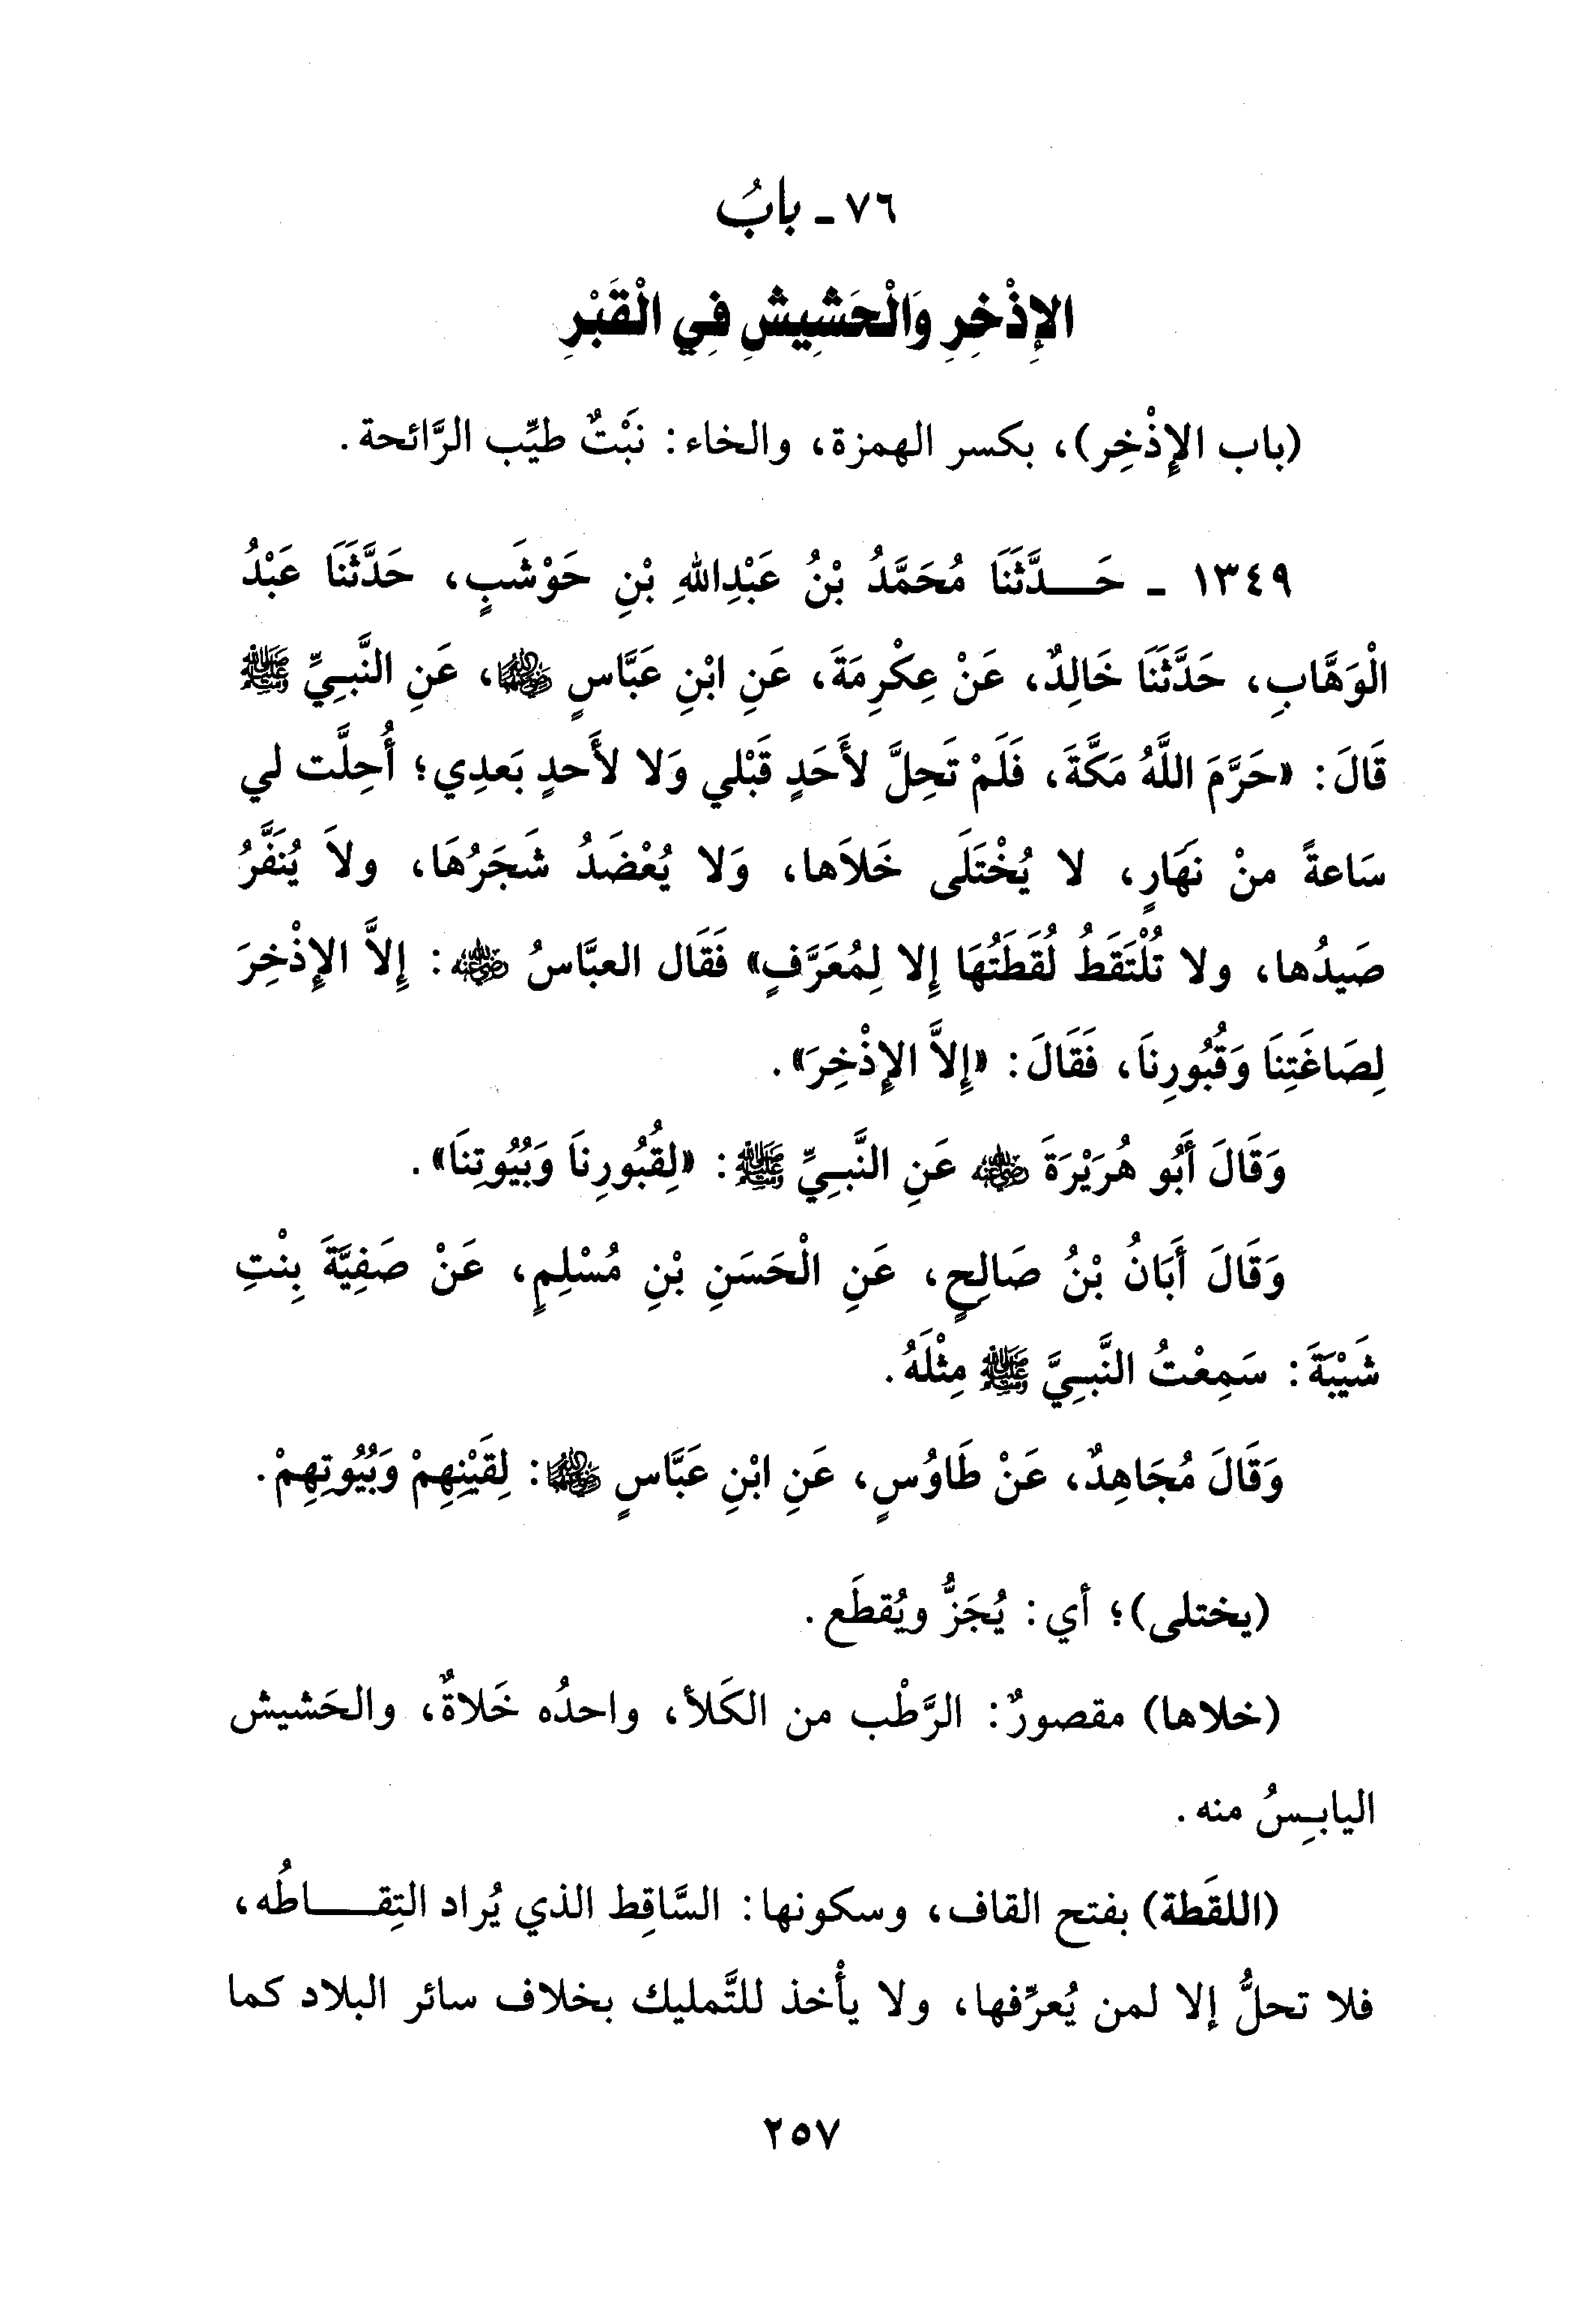 ٧٦ - بابُ
الإِذْخِرِ وَالْحَشِيشِ فِي الْقَبْرِ
(باب الإِذْخِر)، بكسر الهمزة، والخاء: نَبْتٌ طيِّب الرَّائحة.
١٣٤٩ - حَـــدَّثَنَا مُحَمَّدُ بْنُ عَبْدِاللهِ بْنِ حَوْشَبٍ، حَدَّثَنَا عَبْدُ
الْوَهَّابِ، حَدَّثَنَا خَالِدٌ، عَنْ عِكْرِمَةَ، عَنِ ابْنِ عَبَّاسٍ رضي الله عنهما، عَنِ النَّبِيِّ ﷺ
قَالَ: «حَرَّمَ اللَّهُ مَكَّةَ، فَلَمْ تَحِلَّ لأَحَدٍ قَبْلي وَلا لأَحدٍ بَعدِي؛ أُحِلَّت لي
سَاعةً منْ نهَارٍ، لا يُخْتَلَى خَلاَها، وَلا يُعْضَدُ شَجَرُهَا، ولاَ يُنَفَّرُ
صَيدُها، ولا تُلْتَقَطُ لُقَطَتُهَا إِلا لِمُعَرَّفٍ» فَقَال العبَّاسُ رضي الله عنه: إِلاَّ الإِذْخِرَ
لِصَاغَتِنَا وَقُبُورِنَا، فَقَالَ: «إِلاَّ الإِذْخِرَ».
وَقَالَ أَبُو هُرَيْرَةَ رضي الله عنه عَنِ النَّبِيِّ ﷺ: «لِقُبُورِنَا وَبُيُوتِنَا».
وَقَالَ أَبَانُ بْنُ صَالِحٍ، عَنِ الْحَسَنِ بْنِ مُسْلِمٍ، عَنْ صَفِيَّةَ بِنْتِ
شَيْبَةَ: سَمِعْتُ النَّبِيَّ ﷺ مِثْلَهُ.
وَقَالَ مُجَاهِدٌ، عَنْ طَاوُسٍ، عَنِ ابْنِ عَبَّاسٍ رضي الله عنهما: لِقَيْنِهِمْ وَبُيُوتِهِمْ.
(يختلى)؛ أي: يُجَزُّ ويُقطَع.
(خلاها) مقصورٌ: الرَّطْب من الكَلأ، واحدُه خَلاةٌ، والحَشيش
اليابِسُ منه.
(اللقَطة) بفتح القاف، وسكونها: السَّاقِط الذي يُراد التِقـــاطُه،
فلا تحلُّ إلا لمن يُعرِّفها، ولا يأْخذ للتَّمليك بخلاف سائر البلاد كما
٢٥٧